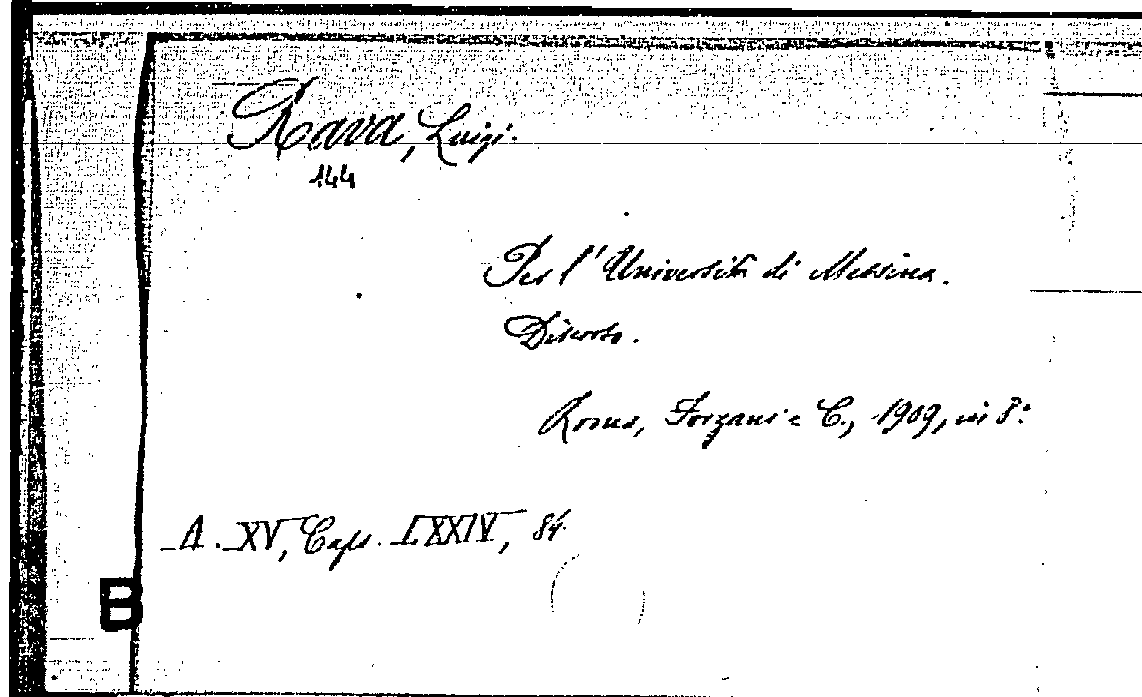 Rava, Luigi.
144
Per l'Università di Messina.
Discorso.
Roma, Forzani e C., 1909, in 8.°
A. XV, Caps. LXXIV, 84.
B